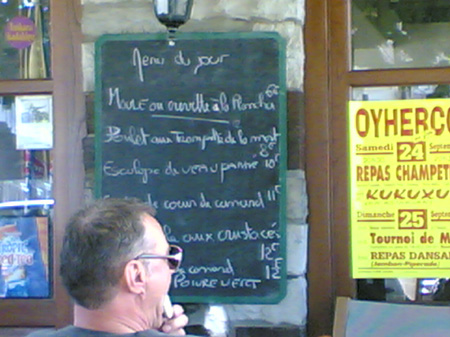 Menu du jour
Moule ou crevette à la Plancha 6€
Poulet aux Trompette de la mort
8€
Escalope de veau panné 10€
de coeur de canard 11€
la aux crustacés
12€
de canard 12€
POIVRE VERT
OYHERC
Samedi 24 Septe
REPAS CHAMPET
KUKUXU
Dimanche 25 Septe
Tournoi de M
REPAS DANSA
(Jambon-Piperade)